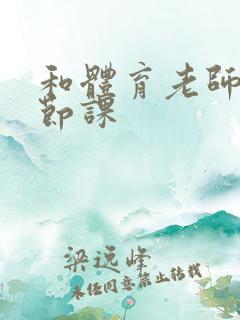 和體育老師
節課
梁远峰
未經同意禁止转载